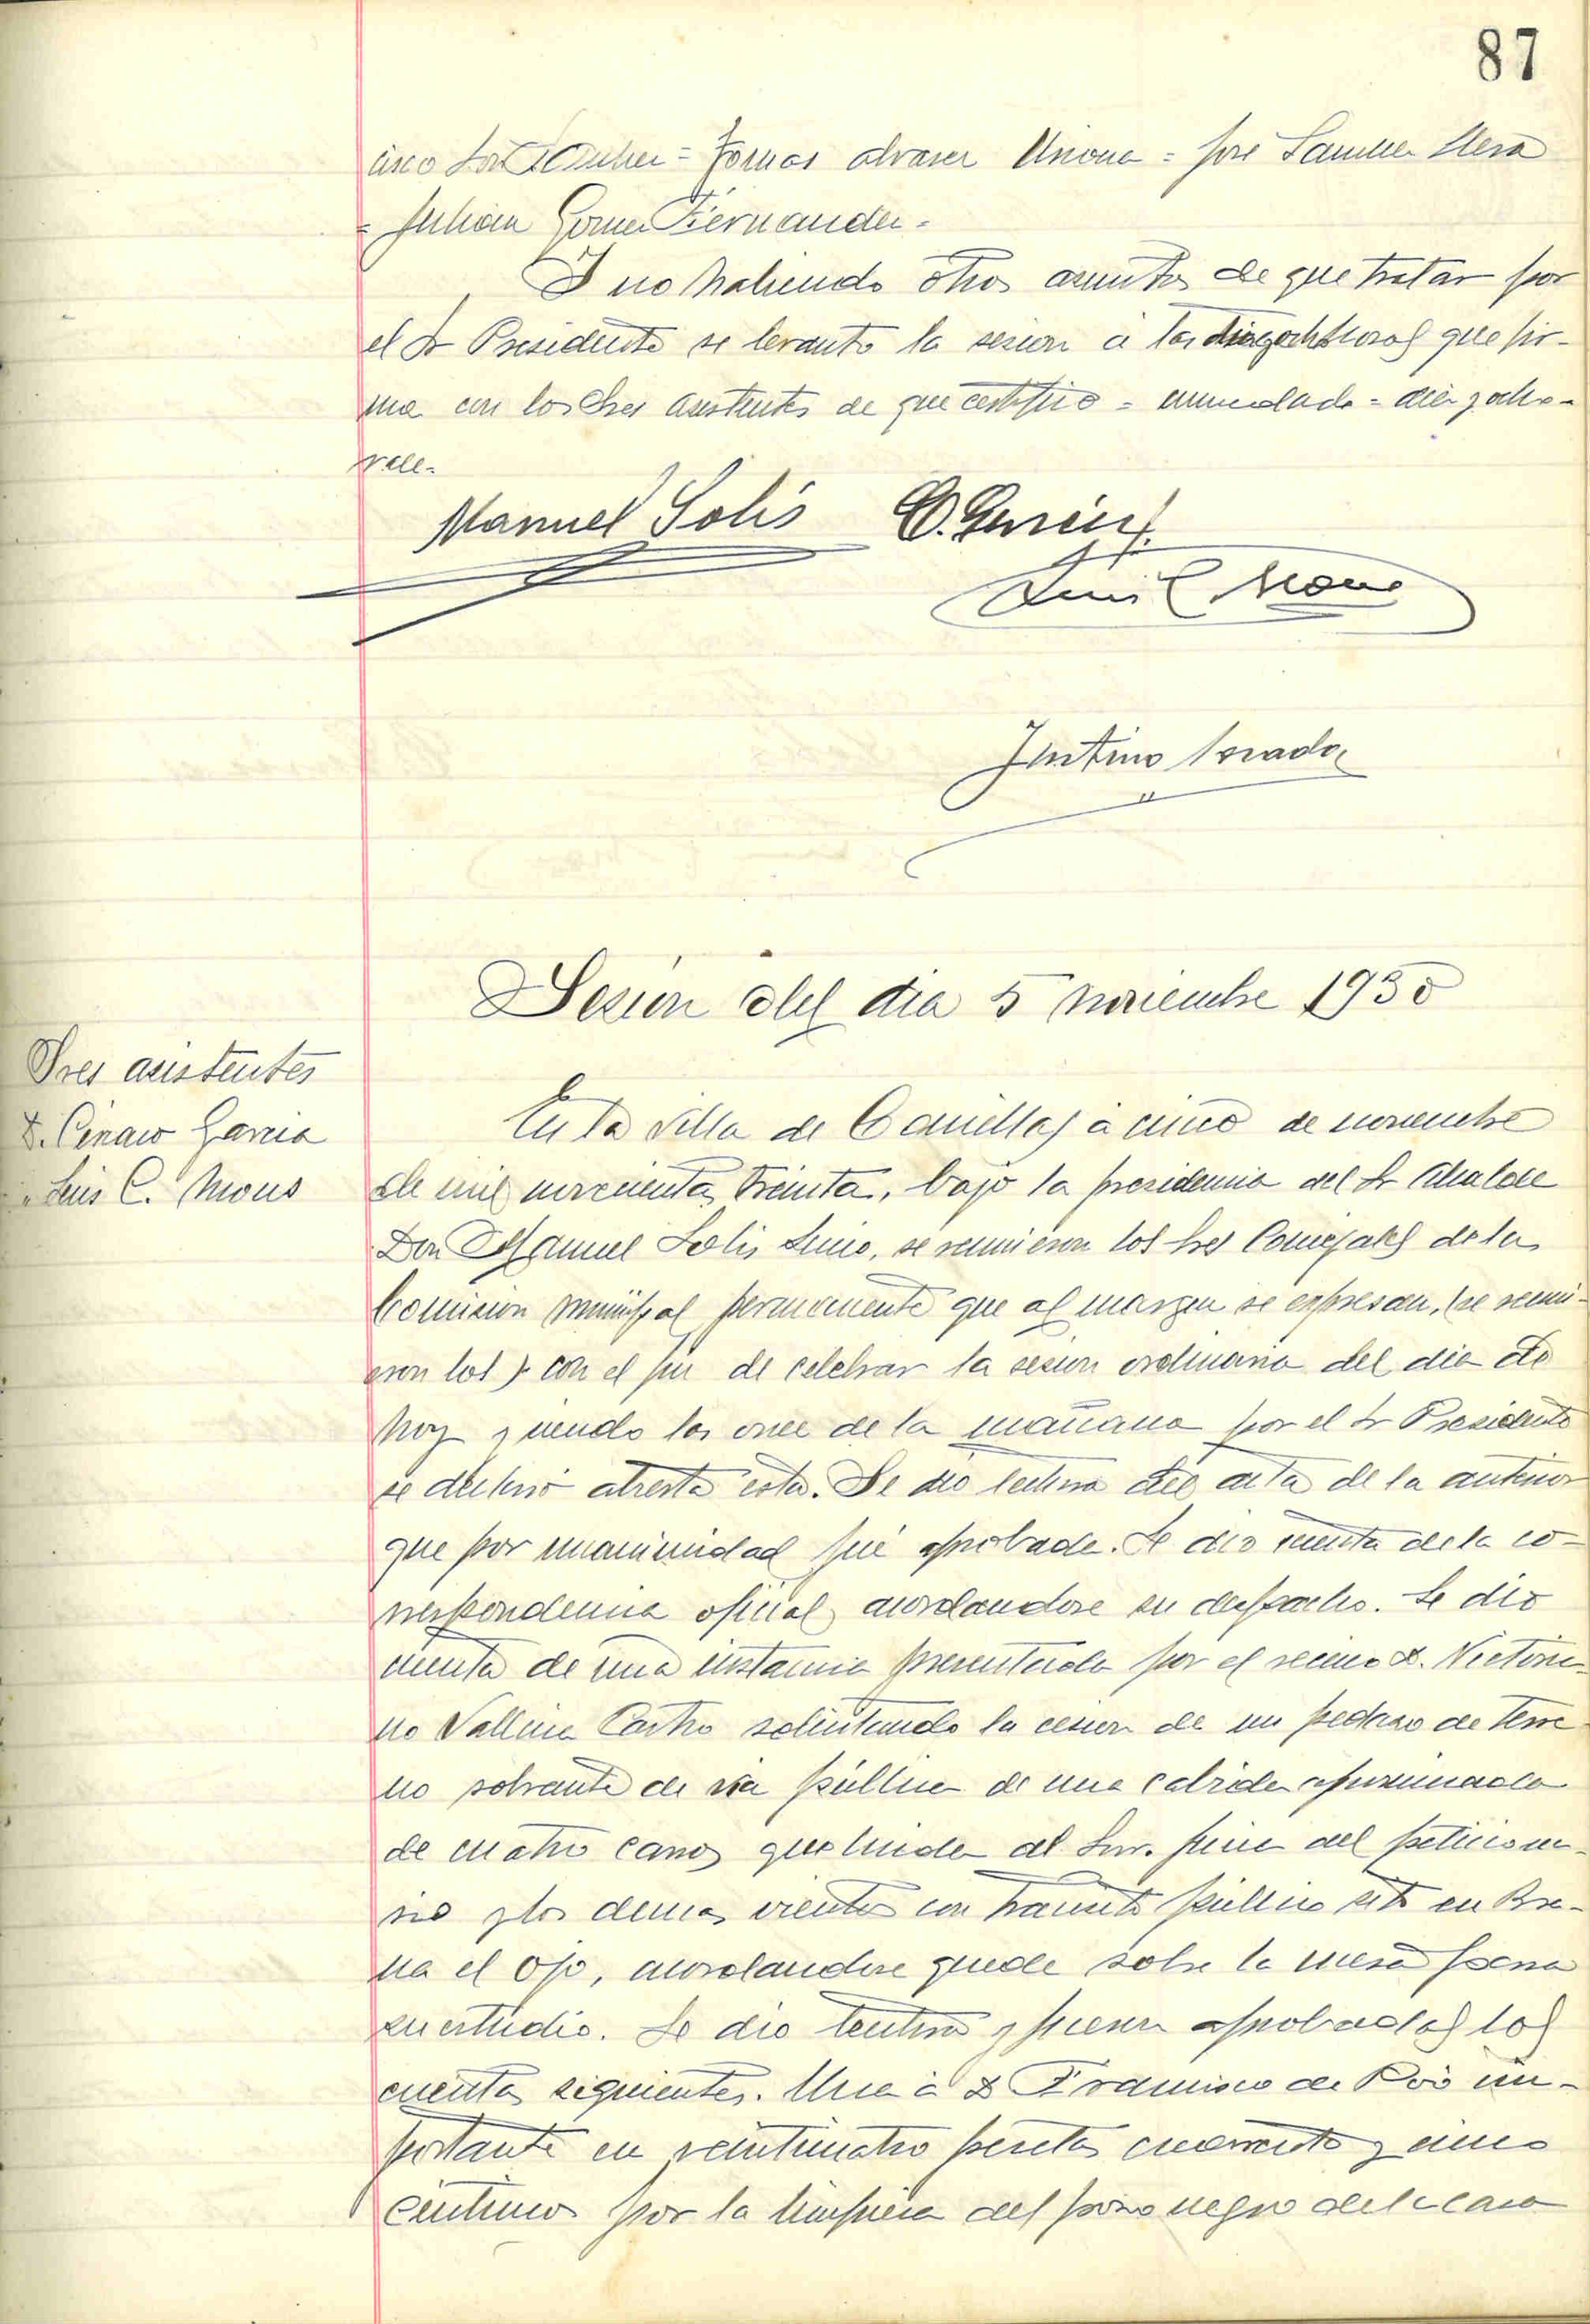 87
cisco = Tomas Alvarez = Jose
= Julian Gomez Fernandez.
Y no habiendo otros asuntos de que tratar por
el Sr Presidente se levanto la sesion a las horas que fir-
ma con los Sres asistentes de que certifico = enmendado = diez y ocho =
vale.
Manuel Solis
Justino
Sesion del dia 5 noviembre 1930
Sres asistentes
D. Genaro Garcia
" Luis C. Mons
En la Villa de Canillas a cinco de noviembre
de mil novecientos treinta, bajo la presidencia del Sr Alcalde
Don Manuel Solis, se reunieron los Sres Concejales de la
Comision municipal permanente que al margen se expresan, (se reuni-
eron los) con el fin de celebrar la sesion ordinaria del dia de
hoy y siendo las once de la mañana por el Sr Presidente
se declaró abierta esta. Se dio lectura del acta de la anterior
que por unanimidad fué aprobada. Se dio cuenta de la co-
rrespondencia oficial acordandose su despacho. Se dio
cuenta de una instancia presentada por el vecino D. Victoria-
no Vallina Castro solicitando la cesion de un pedazo de terre
no sobrante de via pública de una cabida aproximada
de cuatro que linda al Sur. finca del peticiona-
rio y los demas vientos con transito público sito en
el ojo, acordandose quede sobre la mesa para
su estudio. Se dio lectura y fueron aprobadas las
cuentas siguientes. Una a D Francisco de im-
portante en veinticuatro pesetas cuarenta y cinco
centimos por la limpieza del pozo negro de la casa